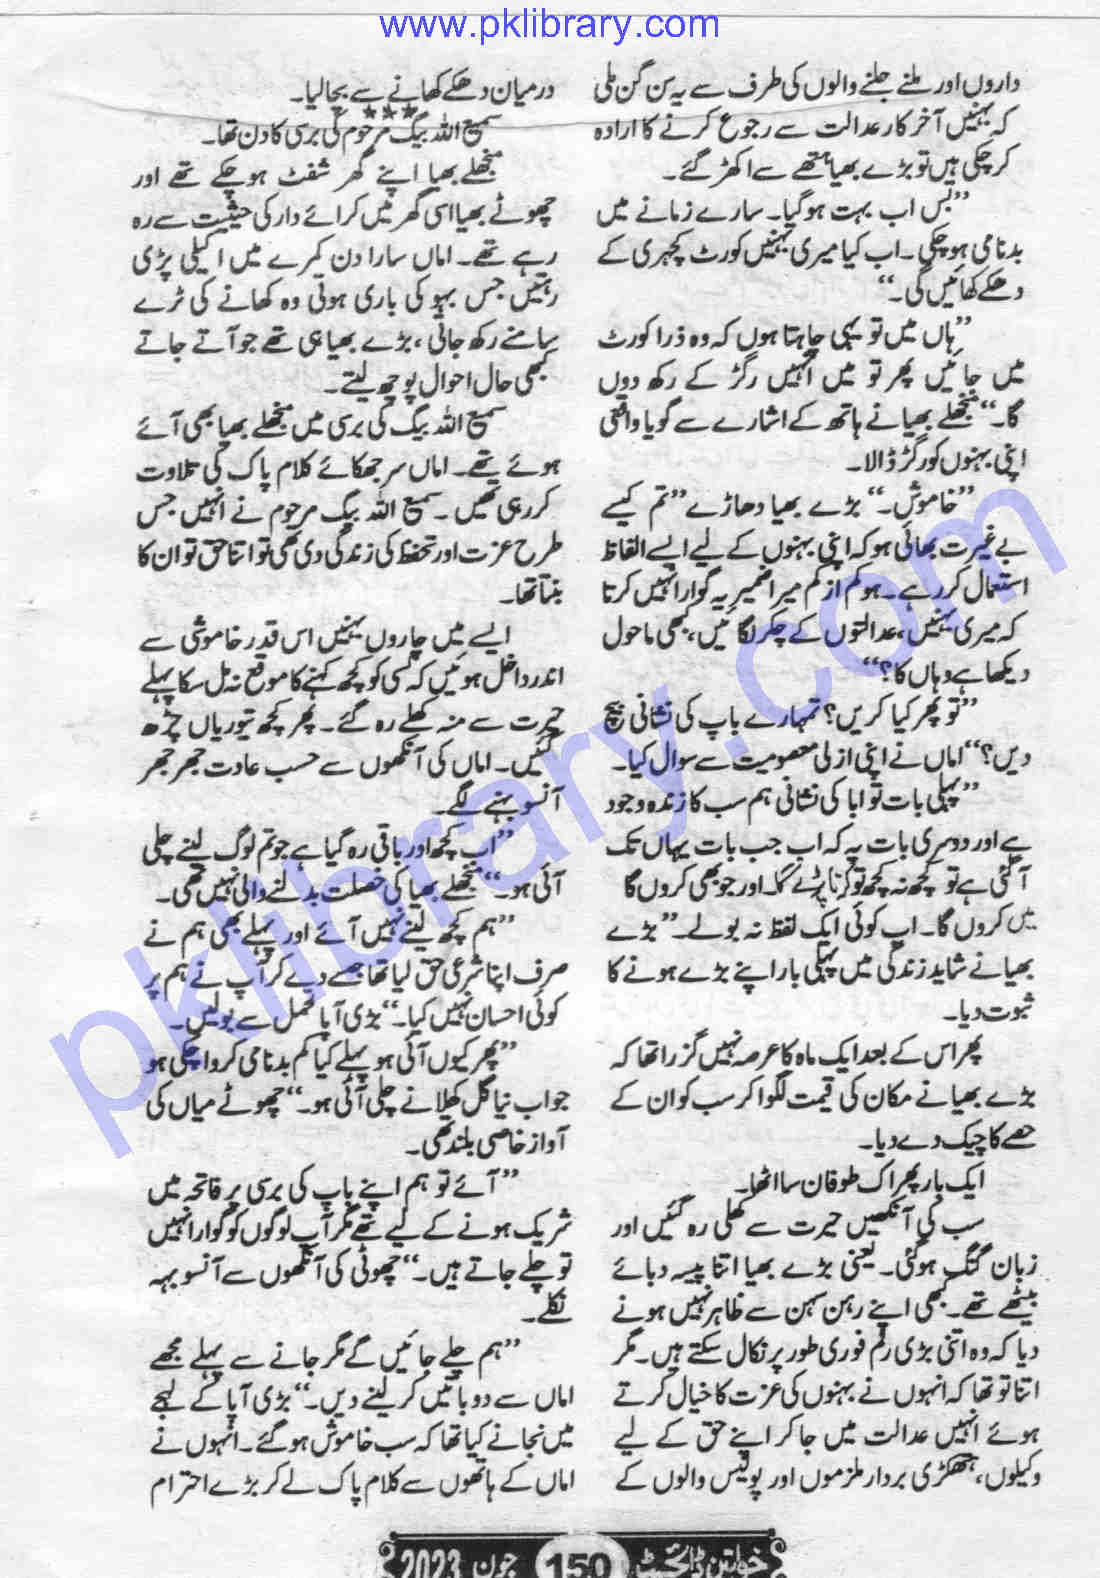 www.pklibrary.com
داروں اور ملنے جلنے والوں کی طرف سے یہ سن گن ملی
کہ بہنیں آخر کار عدالت سے رجوع کرنے کا ارادہ
کر چکی ہیں تو بڑے بھیا ہتھے سے اکھڑ گئے۔
”بس اب بہت ہوگیا۔ سارے زمانے میں
بدنامی ہوچکی۔ اب کیا میری بہنیں کورٹ کچہری کے
دھکے کھائیں گی۔“
”ہاں میں تو یہی چاہتا ہوں کہ وہ ذرا کورٹ
میں جائیں پھر تو میں انہیں رگڑ کے رکھ دوں
گا۔“ منجھلے بھیا نے ہاتھ کے اشارے سے گویا واقعی
اپنی بہنوں کو رگڑ ڈالا۔
”خاموش۔“ بڑے بھیا دھاڑے ”تم کیسے
بے غیرت بھائی ہو کہ اپنی بہنوں کے لیے ایسے الفاظ
استعمال کر رہے۔ ہو کم از کم میرا ضمیر یہ گوارا نہیں کرتا
کہ میری بہنیں، عدالتوں کے چکر لگائیں، بھی ماحول
دیکھا ہے وہاں کا؟“
”تو پھر کیا کریں؟ تمہارے باپ کی نشانی بیچ
دیں؟“ اماں نے اپنی ازلی معصومیت سے سوال کیا۔
”پہلی بات تو ابا کی نشانی ہم سب کا زندہ وجود
ہے اور دوسری بات یہ کہ اب جب بات یہاں تک
آ گئی ہے تو کچھ نہ کچھ تو کرنا پڑے گا اور جو بھی کروں گا
میں کروں گا۔ اب کوئی ایک لفظ نہ بولے۔“ بڑے
بھیا نے شاید زندگی میں پہلی بار اپنے بڑے ہونے کا
ثبوت دیا۔
پھر اس کے بعد ایک ماہ کا عرصہ نہیں گزرا تھا کہ
بڑے بھیا نے مکان کی قیمت لگوا کر سب کو ان کے
حصے کا چیک دے دیا۔
ایک بار پھر اک طوفان سا اٹھا۔
سب کی آنکھیں حیرت سے کھلی رہ گئیں اور
زبان گنگ ہوگئی۔ یعنی بڑے بھیا اتنا پیسہ دبائے
بیٹھے تھے۔ کبھی اپنے رہن سہن سے ظاہر نہیں ہونے
دیا کہ وہ اتنی بڑی رقم فوری طور پر نکال سکتے ہیں۔ مگر
اتنا تو تھا کہ انہوں نے بہنوں کی عزت کا خیال کرتے
ہوئے انہیں عدالت میں جا کر اپنے حق کے لیے
وکیلوں، ہتھکڑی بردار ملزموں اور پولیس والوں کے
درمیان دھکے کھانے سے بچا لیا۔
***
سمیع اللہ بیگ مرحوم کی برسی کا دن تھا۔
منجھلے بھیا اپنے گھر شفٹ ہو چکے تھے اور
چھوٹے بھیا اسی گھر میں کرائے دار کی حیثیت سے رہ
رہے تھے۔ اماں سارا دن کمرے میں اکیلی پڑی
رہتیں جس بہو کی باری ہوتی وہ کھانے کی ٹرے
سامنے رکھ جاتی، بڑے بھیا ہی تھے جو آتے جاتے
کبھی حال احوال پوچھ لیتے۔
سمیع اللہ بیگ کی برسی میں منجھلے بھیا بھی آئے
ہوئے تھے۔ اماں سر جھکائے کلام پاک کی تلاوت
کر رہی تھیں۔ سمیع اللہ بیگ مرحوم نے انہیں جس
طرح عزت اور تحفظ کی زندگی دی تھی تو اتنا حق تو ان کا
بنتا تھا۔
ایسے میں چاروں بہنیں اس قدر خاموشی سے
اندر داخل ہوئیں کہ کسی کو کچھ کہنے کا موقع نہ مل سکا پہلے
حیرت سے منہ کھلے رہ گئے۔ پھر کچھ تیوریاں چڑھ
گئیں۔ اماں کی آنکھوں سے حسب عادت جھر جھر
آنسو بہنے لگے۔
”اب کچھ اور باقی رہ گیا ہے جو تم لوگ لینے چلی
آئی ہو۔“ منجھلے بھیا کی خصلت بدلنے والی نہیں تھی۔
”ہم کچھ لینے نہیں آئے اور پہلے بھی ہم نے
صرف اپنا شرعی حق لیا تھا جسے دے کر آپ نے ہم پر
کوئی احسان نہیں کیا۔“ بڑی آپا تحمل سے بولیں۔
”پھر کیوں آئی ہو پہلے کیا کم بدنامی کروا چکی ہو
جو اب نیا گل کھلانے چلی آئی ہو۔“ چھوٹے میاں کی
آواز خاصی بلند تھی۔
”آئے تو ہم اپنے باپ کی برسی پر فاتحہ میں
شریک ہونے کے لیے تھے مگر آپ لوگوں کو گوارا نہیں
تو چلے جاتے ہیں۔“ چھوٹی کی آنکھوں سے آنسو بہہ
نکلے۔
”ہم چلے جائیں گے مگر جانے سے پہلے مجھے
اماں سے دو باتیں کر لینے دیں۔“ بڑی آپا کے لہجے
میں نجانے کیا تھا کہ سب خاموش ہو گئے۔ انہوں نے
اماں کے ہاتھوں سے کلام پاک لے کر بڑے احترام
خواتین ڈائجسٹ 150 جون 2023
pklibrary.com